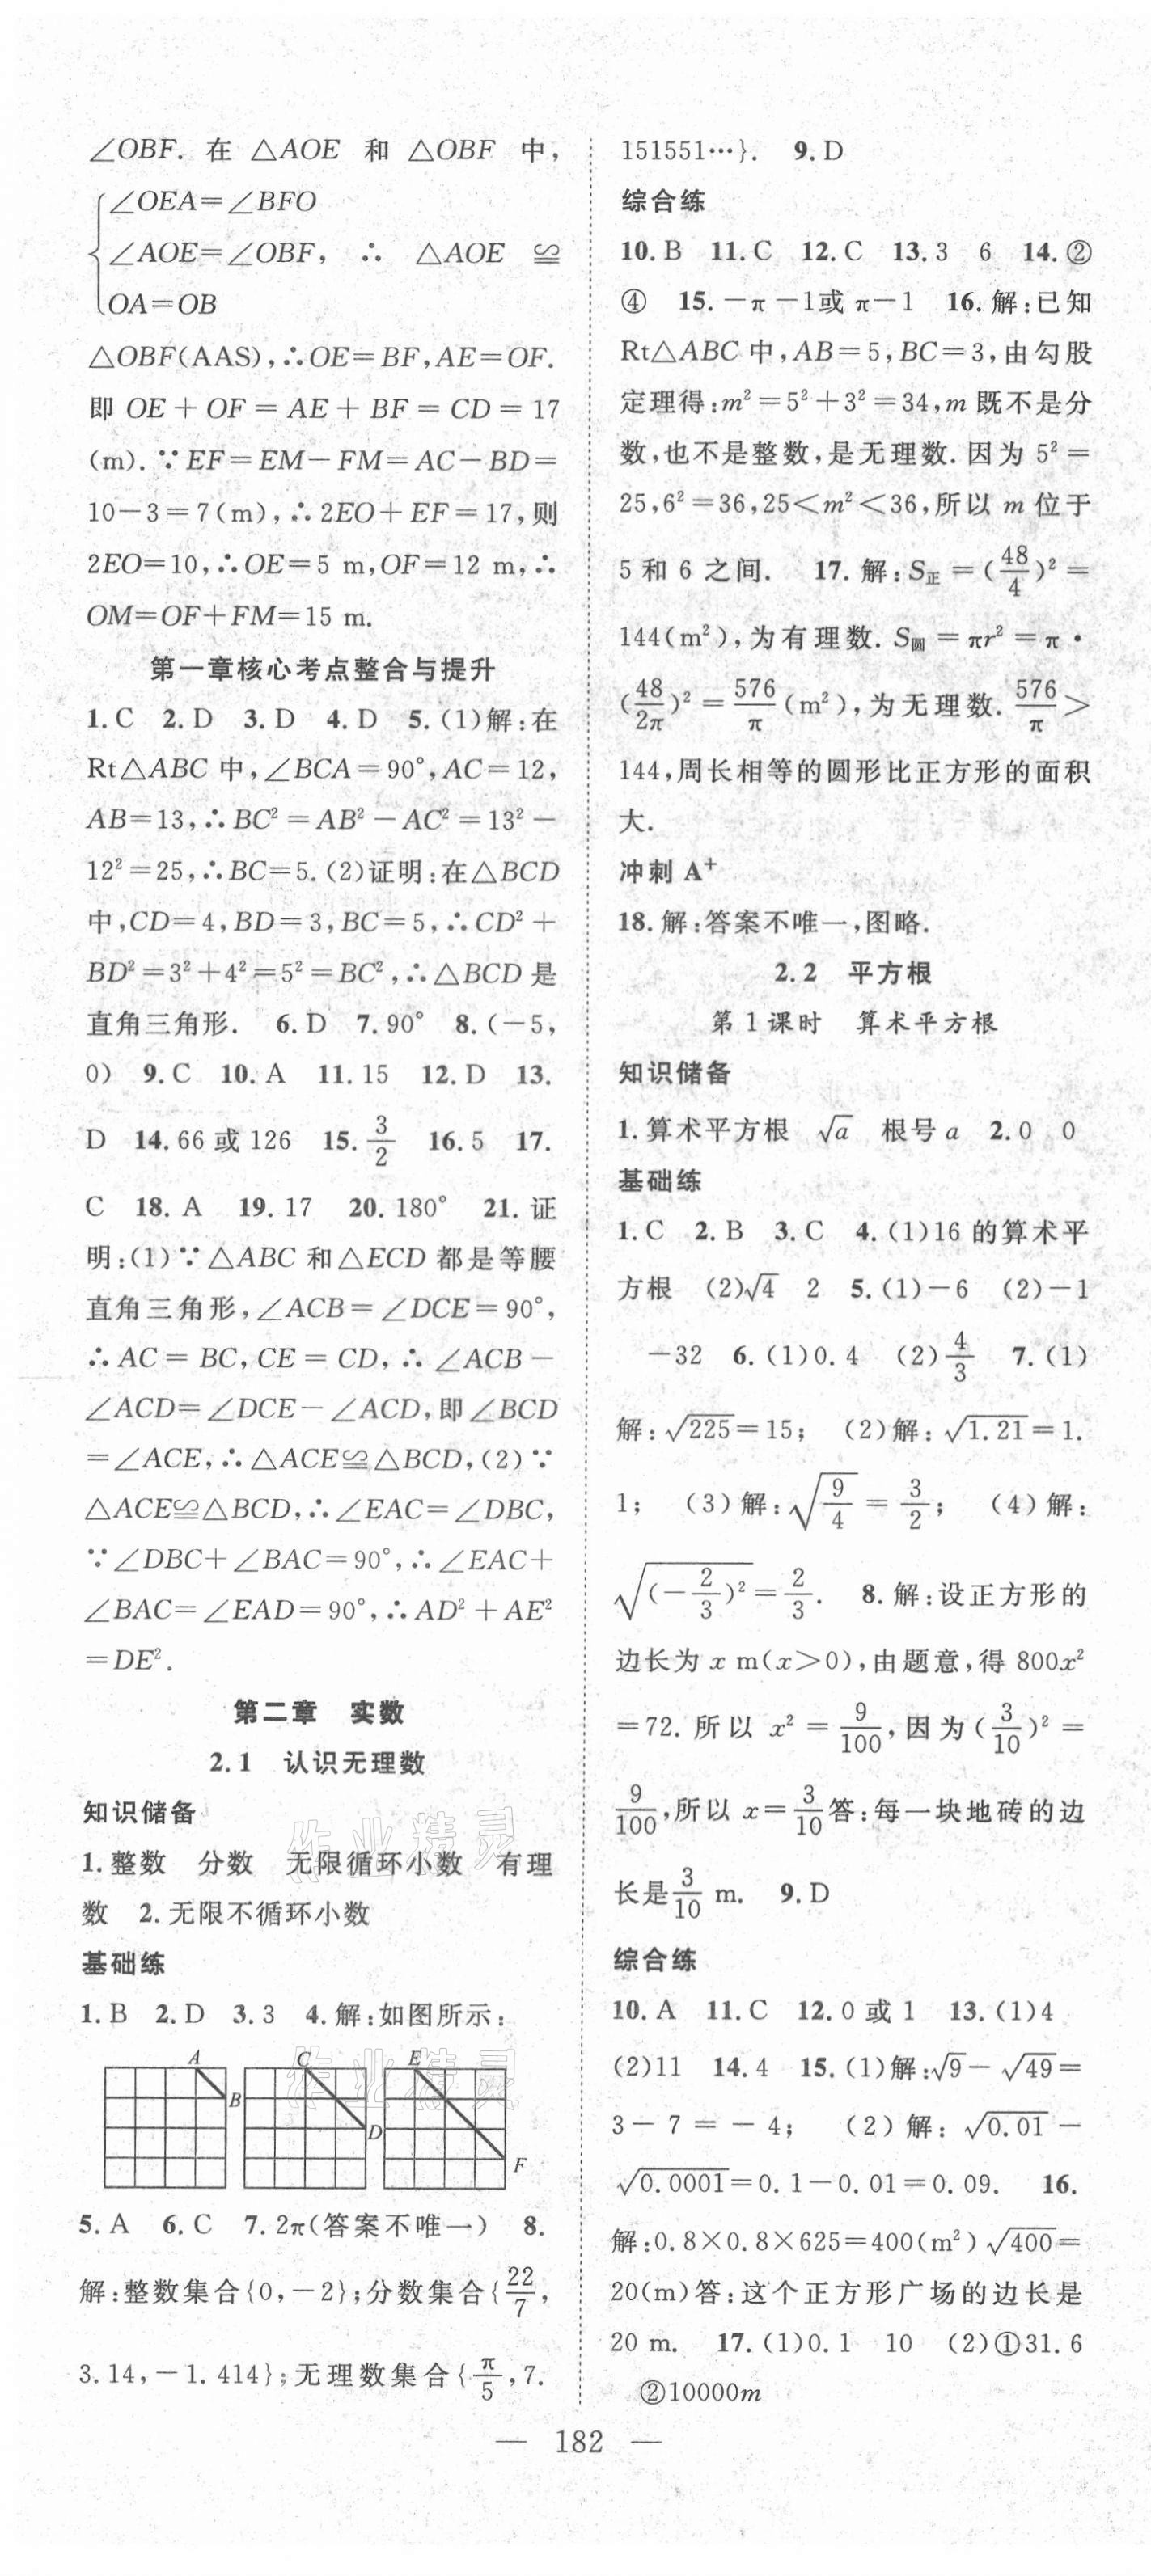 ∠OBF. 在 △AOE 和 △OBF 中,
∠OEA=∠BFO
∠AOE=∠OBF, ∴ △AOE ≌
OA=OB
△OBF(AAS),∴OE=BF,AE=OF.
即 OE+OF=AE+BF=CD=17
(m).∵EF=EM-FM=AC-BD=
10-3=7(m),∴2EO+EF=17,则
2EO=10,∴OE=5 m,OF=12 m,∴
OM=OF+FM=15 m.
第一章核心考点整合与提升
1.C 2.D 3.D 4.D 5.(1)解:在
Rt△ABC 中,∠BCA=90°,AC=12,
AB=13,∴BC²=AB²-AC²=13²-
12²=25,∴BC=5.(2)证明:在△BCD
中,CD=4,BD=3,BC=5,∴CD²+
BD²=3²+4²=5²=BC²,∴△BCD 是
直角三角形. 6.D 7.90° 8.(-5,
0) 9.C 10.A 11.15 12.D 13.
D 14.66 或 126 15.3/2 16.5 17.
C 18.A 19.17 20.180° 21.证
明:(1)∵△ABC 和△ECD 都是等腰
直角三角形,∠ACB=∠DCE=90°,
∴AC=BC,CE=CD,∴∠ACB-
∠ACD=∠DCE-∠ACD,即∠BCD
=∠ACE,∴△ACE≌△BCD,(2)∵
△ACE≌△BCD,∴∠EAC=∠DBC,
∵∠DBC+∠BAC=90°,∴∠EAC+
∠BAC=∠EAD=90°,∴AD²+AE²
=DE².
第二章 实数
2.1 认识无理数
知识储备
1.整数 分数 无限循环小数 有理
数 2.无限不循环小数
基础练
1.B 2.D 3.3 4.解:如图所示:
A B C D E F
5.A 6.C 7.2π(答案不唯一) 8.
解:整数集合{0,-2};分数集合{22/7,
3.14,-1.414};无理数集合{π/5,7.
151551…}. 9.D
综合练
10.B 11.C 12.C 13.3 6 14.②
④ 15.-π-1或 π-1 16.解:已知
Rt△ABC 中,AB=5,BC=3,由勾股
定理得:m²=5²+3²=34,m 既不是分
数,也不是整数,是无理数.因为 5²=
25,6²=36,25<m²<36,所以 m 位于
5 和 6 之间. 17.解:S正=(48/4)²=
144(m²),为有理数.S圆=πr²=π·
(48/2π)²=576/π(m²),为无理数.576/π>
144,周长相等的圆形比正方形的面积
大.
冲刺 A⁺
18.解:答案不唯一,图略.
2.2 平方根
第 1 课时 算术平方根
知识储备
1.算术平方根 √a 根号 a 2.0 0
基础练
1.C 2.B 3.C 4.(1)16 的算术平
方根 (2)√4 2 5.(1)-6 (2)-1
-32 6.(1)0.4 (2)4/3 7.(1)
解:√225=15; (2)解:√1.21=1.
1; (3)解:√(9/4)=3/2; (4)解:
√((-2/3)²)=2/3. 8.解:设正方形的
边长为 x m(x>0),由题意,得 800x²
=72.所以 x²=9/100,因为(3/10)²=
9/100,所以 x=3/10答:每一块地砖的边
长是3/10 m. 9.D
综合练
10.A 11.C 12.0 或 1 13.(1)4
(2)11 14.4 15.(1)解:√9-√49=
3-7=-4; (2)解:√0.01-
√0.0001=0.1-0.01=0.09. 16.
解:0.8×0.8×625=400(m²)√400=
20(m)答:这个正方形广场的边长是
20 m. 17.(1)0.1 10 (2)①31.6
②10000m
— 182 —
作业精灵
作业精灵